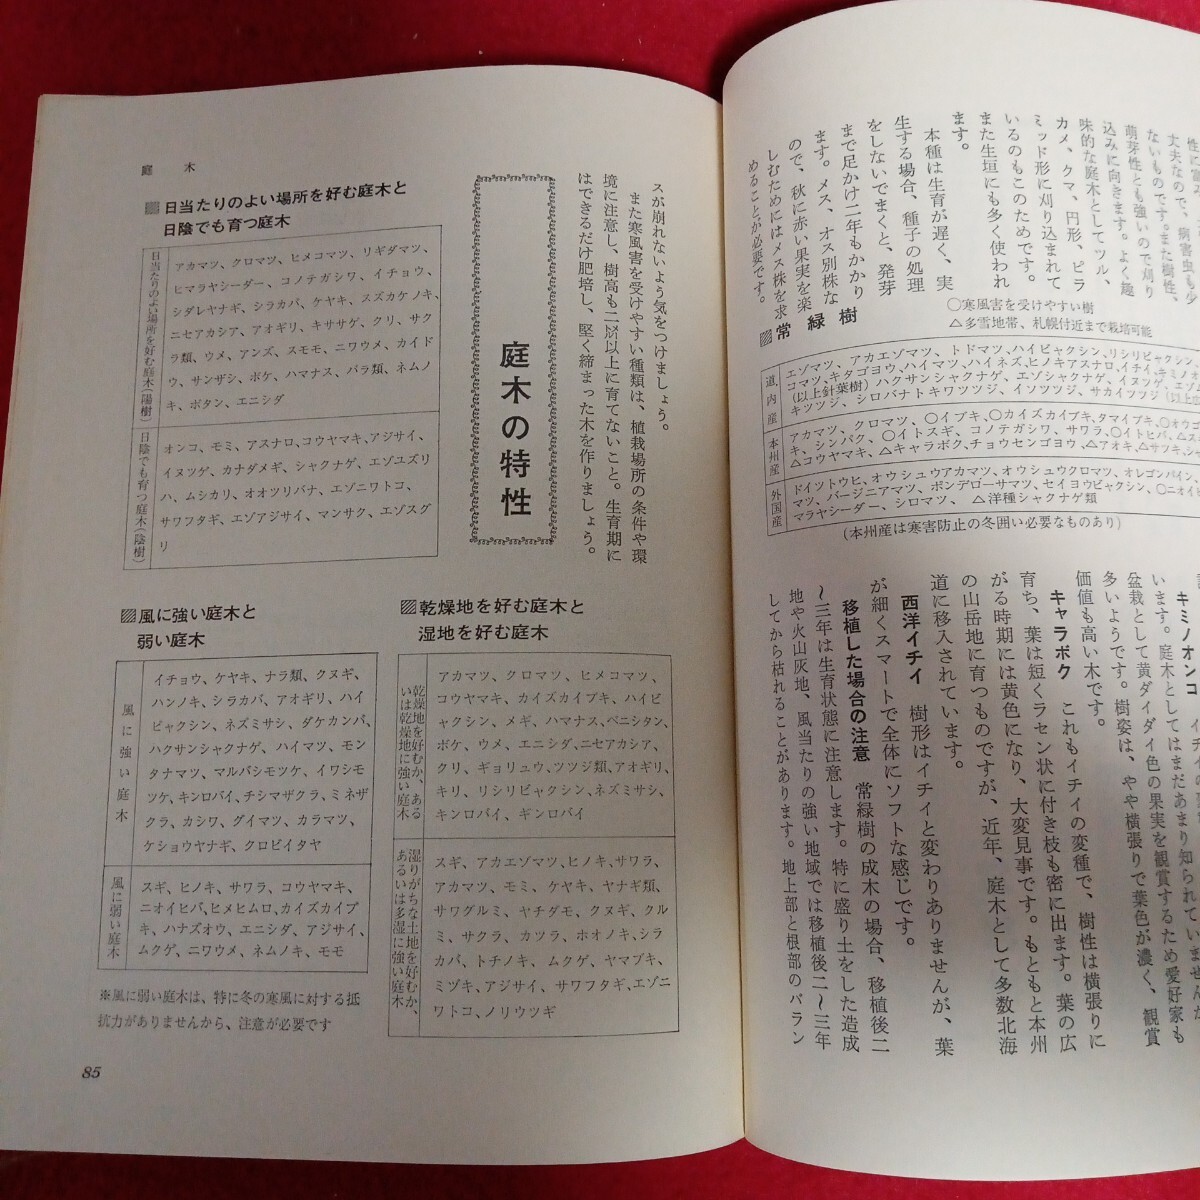 丈夫なので、病害虫も少
ないものです。また樹性、
萌芽性とも強いので刈り
込みに向きます。よく趣
味的な庭木としてツル、
カメ、クマ、円形、ピラ
ミッド形に刈り込まれて
いるのもこのためです。
また生垣にも多く使われ
ます。
本種は生育が遅く、実
生する場合、種子の処理
をしないでまくと、発芽
まで足かけ二年もかかり
ます。メス、オス別株な
ので、秋に赤い果実を楽
しむためにはメス株を求
めることが必要です。
〇寒風害を受けやすい樹
△多雪地帯、札幌付近まで栽培可能
▨常緑樹
道内産
エゾマツ、アカエゾマツ、トドマツ、ハイビャクシン、リシリビャクシン
コマツ、キタゴヨウ、ハイマツ、ハイネズ、ヒノキアスナロ、イチイ、キミノオ
(以上針葉樹)ハクサンシャクナゲ、エゾシャクナゲ、イヌツゲ、エゾ
キツツジ、シロバナトキワツツジ、イソツツジ、サカイツツジ(以上広
本州産
アカマツ、クロマツ、〇イブキ、〇カイズカイブキ、タマイブキ、〇オウゴ
キ、シンパク、〇イトスギ、コノテガシワ、サワラ、〇イトヒバ、
△コウヤマキ、△キャラボク、チョウセンゴヨウ、△アオキ、△サツキ、シャ
外国産
ドイツトウヒ、オウシュウアカマツ、オウシュウクロマツ、オレゴンパイン、
マツ、バージニアマツ、ポンデローサマツ、セイヨウビャクシン、〇ニオイ
マラヤシーダー、シロマツ、△洋種シャクナゲ類
(本州産は寒害防止の冬囲い必要なものあり)
キミノオンコ
います。庭木としてはまだあまり知られていませんが
盆栽として黄ダイダイ色の果実を観賞するため愛好家も
多いようです。樹姿は、やや横張りで葉色が濃く、観賞
価値も高い木です。
キャラボク これもイチイの変種で、樹性は横張りに
育ち、葉は短くラセン状に付き枝も密に出ます。葉の広
がる時期には黄色になり、大変見事です。もともと本州
の山岳地に育つものですが、近年、庭木として多数北海
道に移入されています。
西洋イチイ 樹形はイチイと変わりありませんが、葉
が細くスマートで全体にソフトな感じです。
移植した場合の注意 常緑樹の成木の場合、移植後二
〜三年は生育状態に注意します。特に盛り土をした造成
地や火山灰地、風当たりの強い地域では移植後二〜三年
してから枯れることがあります。地上部と根部のバラン
スが崩れないよう気をつけましょう。
また寒風害を受けやすい種類は、植栽場所の条件や環
境に注意し、樹高も二㍍以上に育てないこと。生育期に
はできるだけ肥培し、堅く締まった木を作りましょう。
庭木の特性
庭木
▨日当たりのよい場所を好む庭木と
日陰でも育つ庭木
日当たりのよい場所を好む庭木(陽樹)
アカマツ、クロマツ、ヒメコマツ、リギダマツ、
ヒマラヤシーダー、コノテガシワ、イチョウ、
シダレヤナギ、シラカバ、ケヤキ、スズカケノキ、
ニセアカシア、アオギリ、キササゲ、クリ、サク
ラ類、ウメ、アンズ、スモモ、ニワウメ、カイド
ウ、サンザシ、ボケ、ハマナス、バラ類、ネムノ
キ、ボタン、エニシダ
日陰でも育つ庭木(陰樹)
オンコ、モミ、アスナロ、コウヤマキ、アジサイ、
イヌツゲ、カナダメギ、シャクナゲ、エゾユズリ
ハ、ムシカリ、オオツリバナ、エゾニワトコ、
サワフタギ、エゾアジサイ、マンサク、エゾスグ
リ
▨風に強い庭木と
弱い庭木
風に強い庭木
イチョウ、ケヤキ、ナラ類、クヌギ、
ハンノキ、シラカバ、アオギリ、ハイ
ビャクシン、ネズミサシ、ダケカンバ、
ハクサンシャクナゲ、ハイマツ、モン
タナマツ、マルバシモツケ、イワシモ
ツケ、キンロバイ、チシマザクラ、ミネザ
クラ、カシワ、グイマツ、カラマツ、
ケショウヤナギ、クロビイタヤ
風に弱い庭木
スギ、ヒノキ、サワラ、コウヤマキ、
ニオイヒバ、ヒメヒムロ、カイズカイブ
キ、ハナズオウ、エニシダ、アジサイ、
ムクゲ、ニワウメ、ネムノキ、モモ
※風に弱い庭木は、特に冬の寒風に対する抵
抗力がありませんから、注意が必要です
▨乾燥地を好む庭木と
湿地を好む庭木
乾燥地を好むか、ある
いは乾燥地に強い庭木
アカマツ、クロマツ、ヒメコマツ、
コウヤマキ、カイズカイブキ、ハイビ
ャクシン、メギ、ハマナス、ベニシタン、
ボケ、ウメ、エニシダ、ニセアカシア、
クリ、ギョリュウ、ツツジ類、アオギリ、
キリ、リシリビャクシン、ネズミサシ、
キンロバイ、ギンロバイ
湿りがちな土地を好むか、
あるいは多湿に強い庭木
スギ、アカエゾマツ、ヒノキ、サワラ、
アカマツ、モミ、ケヤキ、ヤナギ類、
サワグルミ、ヤチダモ、クヌギ、クル
ミ、サクラ、カツラ、ホオノキ、シラ
カバ、トチノキ、ムクゲ、ヤマブキ、
ミヅキ、アジサイ、サワフタギ、エゾニ
ワトコ、ノリウツギ
85